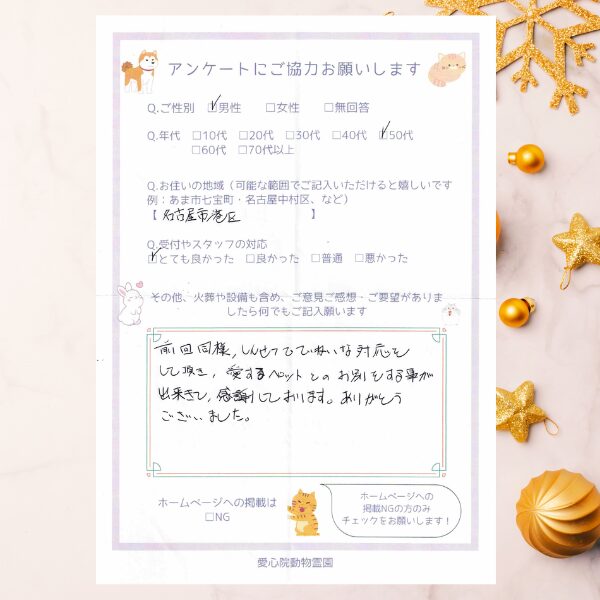 アンケートにご協力お願いします
Q.ご性別 ☑男性 □女性 □無回答
Q.年代 □10代 □20代 □30代 □40代 ☑50代
□60代 □70代以上
Q.お住いの地域（可能な範囲でご記入いただけると嬉しいです
例：あま市七宝町・名古屋中村区、など）
【 名古屋市港区 】
Q.受付やスタッフの対応
☑とても良かった □良かった □普通 □悪かった
その他、火葬や設備も含め、ご意見ご感想・ご要望がありま
したら何でもご記入願います
前回同様、しんせつでていねいな対応を
して頂き、愛するペットとのお別をする事が
出来きて、感謝しております。ありがとう
ございました。
ホームページへの掲載は
□NG
ホームページへの
掲載NGの方のみ
チェックをお願いします！
愛心院動物霊園